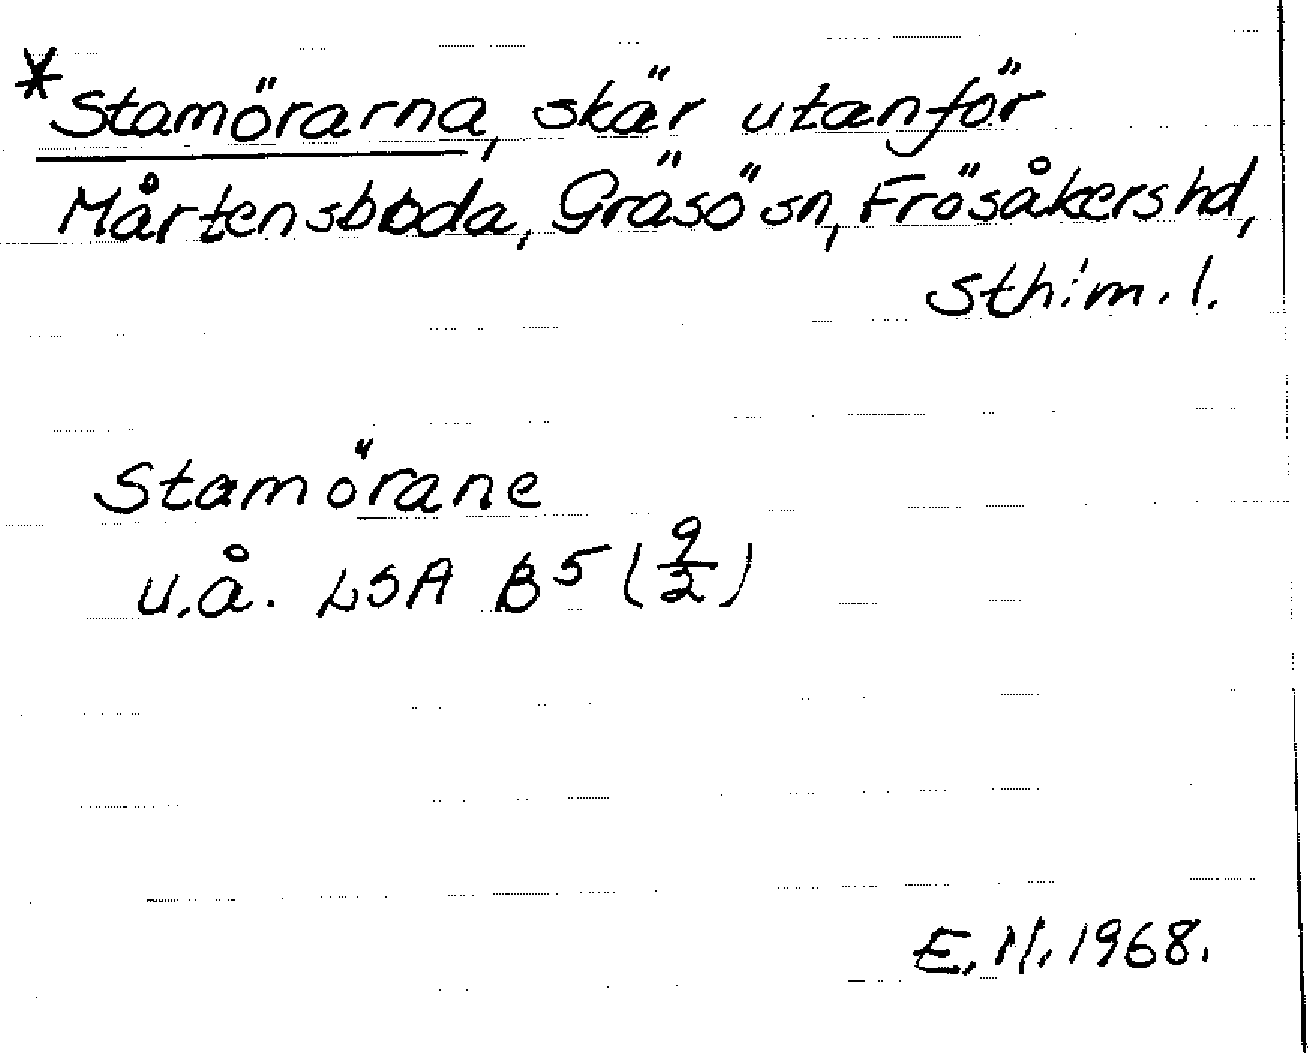 *Stamörarna, skär utanför
Mårtensboda, Gräsö sn, Frösåkers hd,
Sthlm. l.
Stamörane
u.å. LSA B5 (9/2)
E. N. 1968.